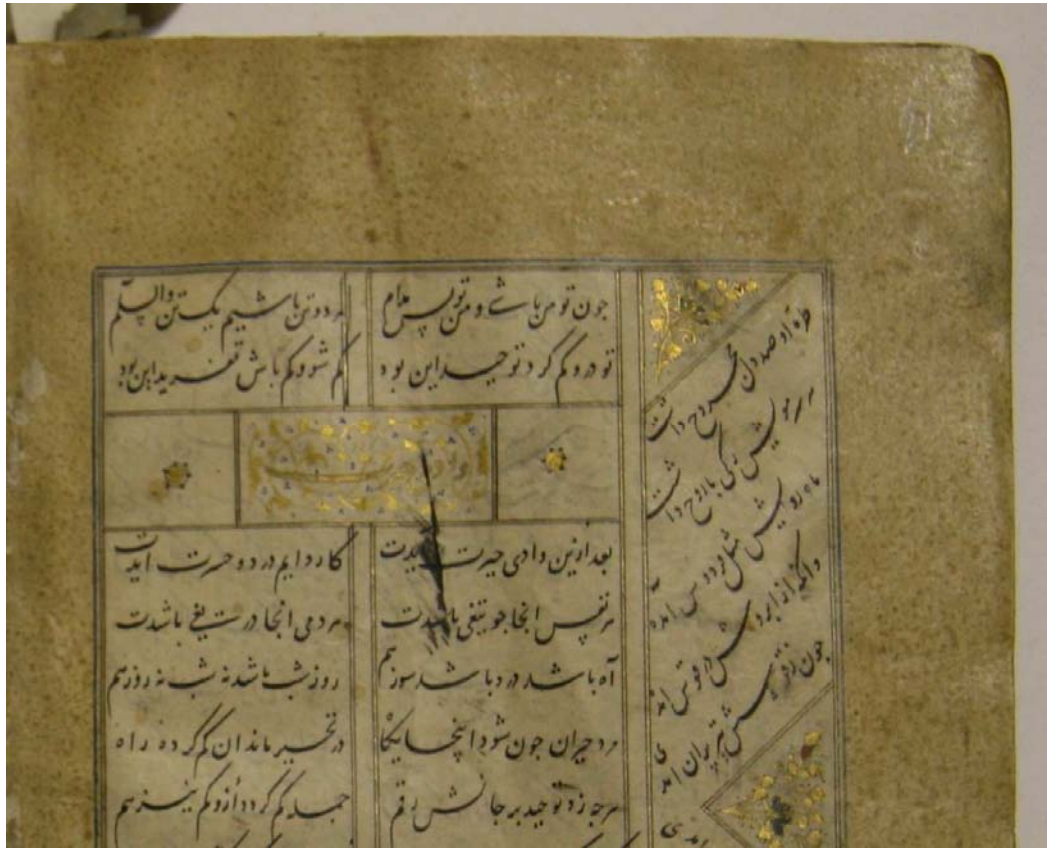 جون تو من باشے و من تو بس مدام هر دو تن باشیم یک تن والسلم
تو درو گم گرد توحید این بود گم شو و گم باش تفرید این بود
بعد ازین وادی حیرت آیدت کار دایم درد و حسرت آیدت
هر نفس انجا جو تیغی باشدت هر دمی انجا دریغی باشدت
آه باشد درد باشد سوز هم روز شب باشد نه شب نه روز هم
مرد حیران جون شود اینجایکاه در تحیر ماند ان گم کرده راه
هرجه زد توحید بر جانش رقم جمله گم گردد ازو گم نیز هم
طره او صد دل مجروح داشت
هر مویش رکی باروح داشت
ماه رویش مثل فردوس امده
وانکه از ابروش در قوس امده
جون ز قوسش تیر بران امدی